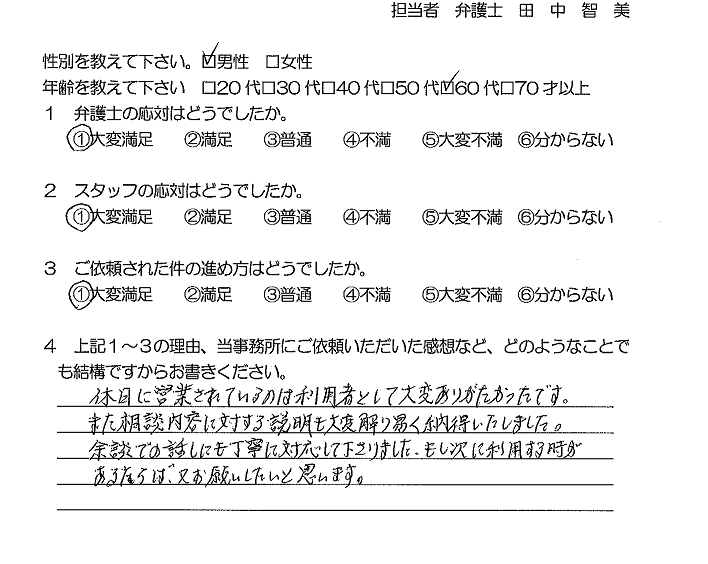 担当者　弁護士　田　中　智　美
性別を教えて下さい。☑男性　□女性
年齢を教えて下さい　□20代□30代□40代□50代☑60代□70才以上
１　弁護士の応対はどうでしたか。
①大変満足　②満足　③普通　④不満　⑤大変不満　⑥分からない
２　スタッフの応対はどうでしたか。
①大変満足　②満足　③普通　④不満　⑤大変不満　⑥分からない
３　ご依頼された件の進め方はどうでしたか。
①大変満足　②満足　③普通　④不満　⑤大変不満　⑥分からない
４　上記１～３の理由、当事務所にご依頼いただいた感想など、どのようなことで
も結構ですからお書きください。
休日に営業されているのは利用者として大変ありがたかったです。
また相談内容に対する説明も大変解り易く納得いたしました。
余談での話しにも丁寧に対応して下さりました、もし次に利用する時が
あるならば、又お願いしたいと思います。